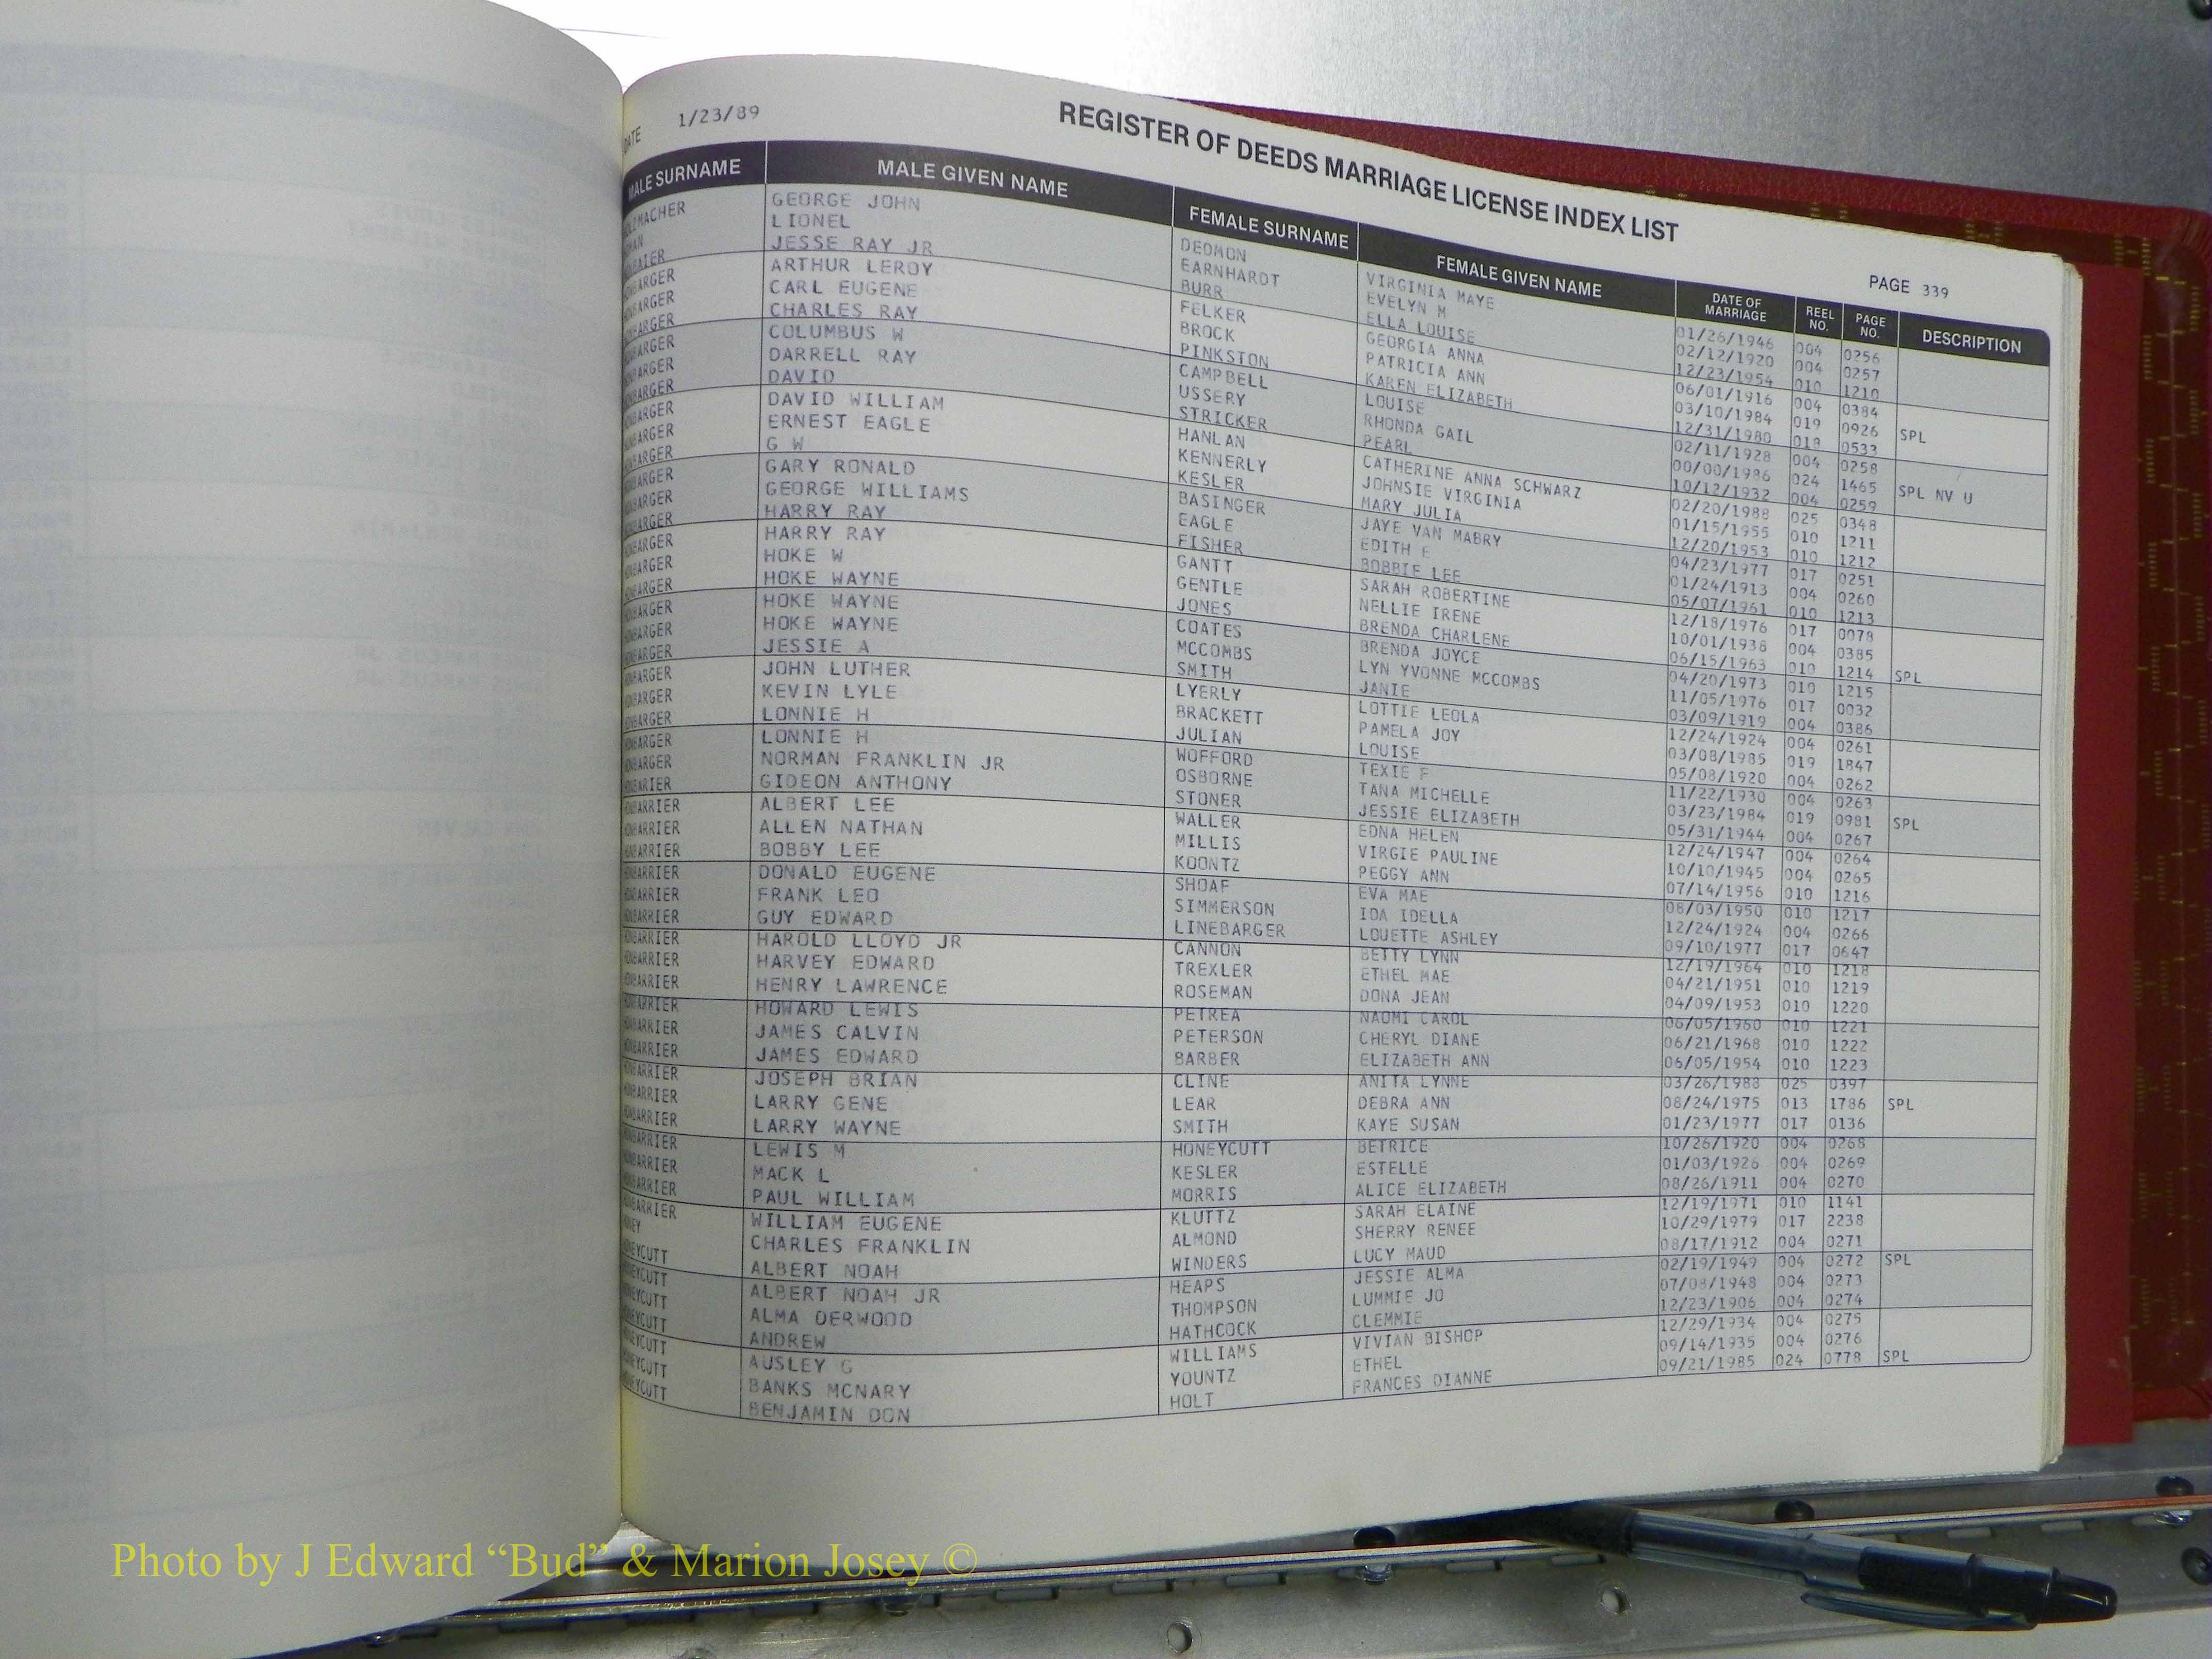 DATE 1/23/89
REGISTER OF DEEDS MARRIAGE LICENSE INDEX LIST
PAGE 339
MALE SURNAME MALE GIVEN NAME FEMALE SURNAME FEMALE GIVEN NAME DATE OF MARRIAGE REEL NO. PAGE NO. DESCRIPTION
GEORGE JOHN DEDMON VIRGINIA MAYE 01/26/1946 004 0256
LIONEL EARNHARDT EVELYN M 02/12/1920 004 0257
JESSE RAY JR BURR ELLA LOUISE 12/23/1954 010 1210
HONBARGER ARTHUR LEROY FELKER GEORGIA ANNA 06/01/1916 004 0384
HONBARGER CARL EUGENE BROCK PATRICIA ANN 03/10/1984 019 0926 SPL
HONBARGER CHARLES RAY PINKSTON KAREN ELIZABETH 12/31/1980 018 0533
HONBARGER COLUMBUS W CAMPBELL LOUISE 02/11/1928 004 0258
HONBARGER DARRELL RAY USSERY RHONDA GAIL 00/00/1986 024 1465 SPL NV U
HONBARGER DAVID STRICKER PEARL 10/12/1932 004 0259
HONBARGER DAVID WILLIAM HANLAN CATHERINE ANNA SCHWARZ 02/20/1988 025 0348
HONBARGER ERNEST EAGLE KENNERLY JOHNSIE VIRGINIA 01/15/1955 010 1211
HONBARGER G W KESLER MARY JULIA 12/20/1953 010 1212
HONBARGER GARY RONALD BASINGER JAYE VAN MABRY 04/23/1977 017 0251
HONBARGER GEORGE WILLIAMS EAGLE EDITH E 01/24/1913 004 0260
HONBARGER HARRY RAY FISHER BOBBIE LEE 05/07/1961 010 1213
HONBARGER HARRY RAY GANTT SARAH ROBERTINE 12/18/1976 017 0078
HONBARGER HOKE W GENTLE NELLIE IRENE 10/01/1938 004 0385
HONBARGER HOKE WAYNE JONES BRENDA CHARLENE 06/15/1963 010 1214 SPL
HONBARGER HOKE WAYNE COATES BRENDA JOYCE 04/20/1973 010 1215
HONBARGER HOKE WAYNE MCCOMBS LYN YVONNE MCCOMBS 11/05/1976 017 0032
HONBARGER JESSIE A SMITH JANIE 03/09/1919 004 0386
HONBARGER JOHN LUTHER LYERLY LOTTIE LEOLA 12/24/1924 004 0261
HONBARGER KEVIN LYLE BRACKETT PAMELA JOY 03/08/1985 019 1847
HONBARGER LONNIE H JULIAN LOUISE 05/08/1920 004 0262
HONBARGER LONNIE H WOFFORD TEXIE F 11/22/1930 004 0263
HONBARGER NORMAN FRANKLIN JR OSBORNE TANA MICHELLE 03/23/1984 019 0981 SPL
HONBARIER GIDEON ANTHONY STONER JESSIE ELIZABETH 05/31/1944 004 0267
HONBARRIER ALBERT LEE WALLER EDNA HELEN 12/24/1947 004 0264
HONBARRIER ALLEN NATHAN MILLIS VIRGIE PAULINE 10/10/1945 004 0265
HONBARRIER BOBBY LEE KOONTZ PEGGY ANN 07/14/1956 010 1216
HONBARRIER DONALD EUGENE SHOAF EVA MAE 08/03/1950 010 1217
HONBARRIER FRANK LEO SIMMERSON IDA IDELLA 12/24/1924 004 0266
HONBARRIER GUY EDWARD LINEBARGER LOUETTE ASHLEY 09/10/1977 017 0647
HONBARRIER HAROLD LLOYD JR CANNON BETTY LYNN 12/19/1964 010 1218
HONBARRIER HARVEY EDWARD TREXLER ETHEL MAE 04/21/1951 010 1219
HONBARRIER HENRY LAWRENCE ROSEMAN DONA JEAN 04/09/1953 010 1220
HONBARRIER HOWARD LEWIS PETREA NAOMI CAROL 06/05/1960 010 1221
HONBARRIER JAMES CALVIN PETERSON CHERYL DIANE 06/21/1968 010 1222
HONBARRIER JAMES EDWARD BARBER ELIZABETH ANN 06/05/1954 010 1223
HONBARRIER JOSEPH BRIAN CLINE ANITA LYNNE 03/26/1988 025 0397
HONBARRIER LARRY GENE LEAR DEBRA ANN 08/24/1975 013 1786 SPL
HONBARRIER LARRY WAYNE SMITH KAYE SUSAN 01/23/1977 017 0136
HONBARRIER LEWIS M HONEYCUTT BETRICE 10/26/1920 004 0268
HONBARRIER MACK L KESLER ESTELLE 01/03/1926 004 0269
HONBARRIER PAUL WILLIAM MORRIS ALICE ELIZABETH 08/26/1911 004 0270
HONBARRIER WILLIAM EUGENE KLUTTZ SARAH ELAINE 12/19/1971 010 1141
HONEY CHARLES FRANKLIN ALMOND SHERRY RENEE 10/29/1979 017 2238
HONEYCUTT ALBERT NOAH WINDERS LUCY MAUD 08/17/1912 004 0271
HONEYCUTT ALBERT NOAH JR HEAPS JESSIE ALMA 02/19/1949 004 0272 SPL
HONEYCUTT ALMA DERWOOD THOMPSON LUMMIE JO 07/08/1948 004 0273
HONEYCUTT ANDREW HATHCOCK CLEMMIE 12/23/1906 004 0274
HONEYCUTT AUSLEY G WILLIAMS VIVIAN BISHOP 12/29/1934 004 0275
HONEYCUTT BANKS MCNARY YOUNTZ ETHEL 09/14/1935 004 0276
HONEYCUTT BENJAMIN DON HOLT FRANCES DIANNE 09/21/1985 024 0778 SPL
Photo by J Edward “Bud” & Marion Josey ©